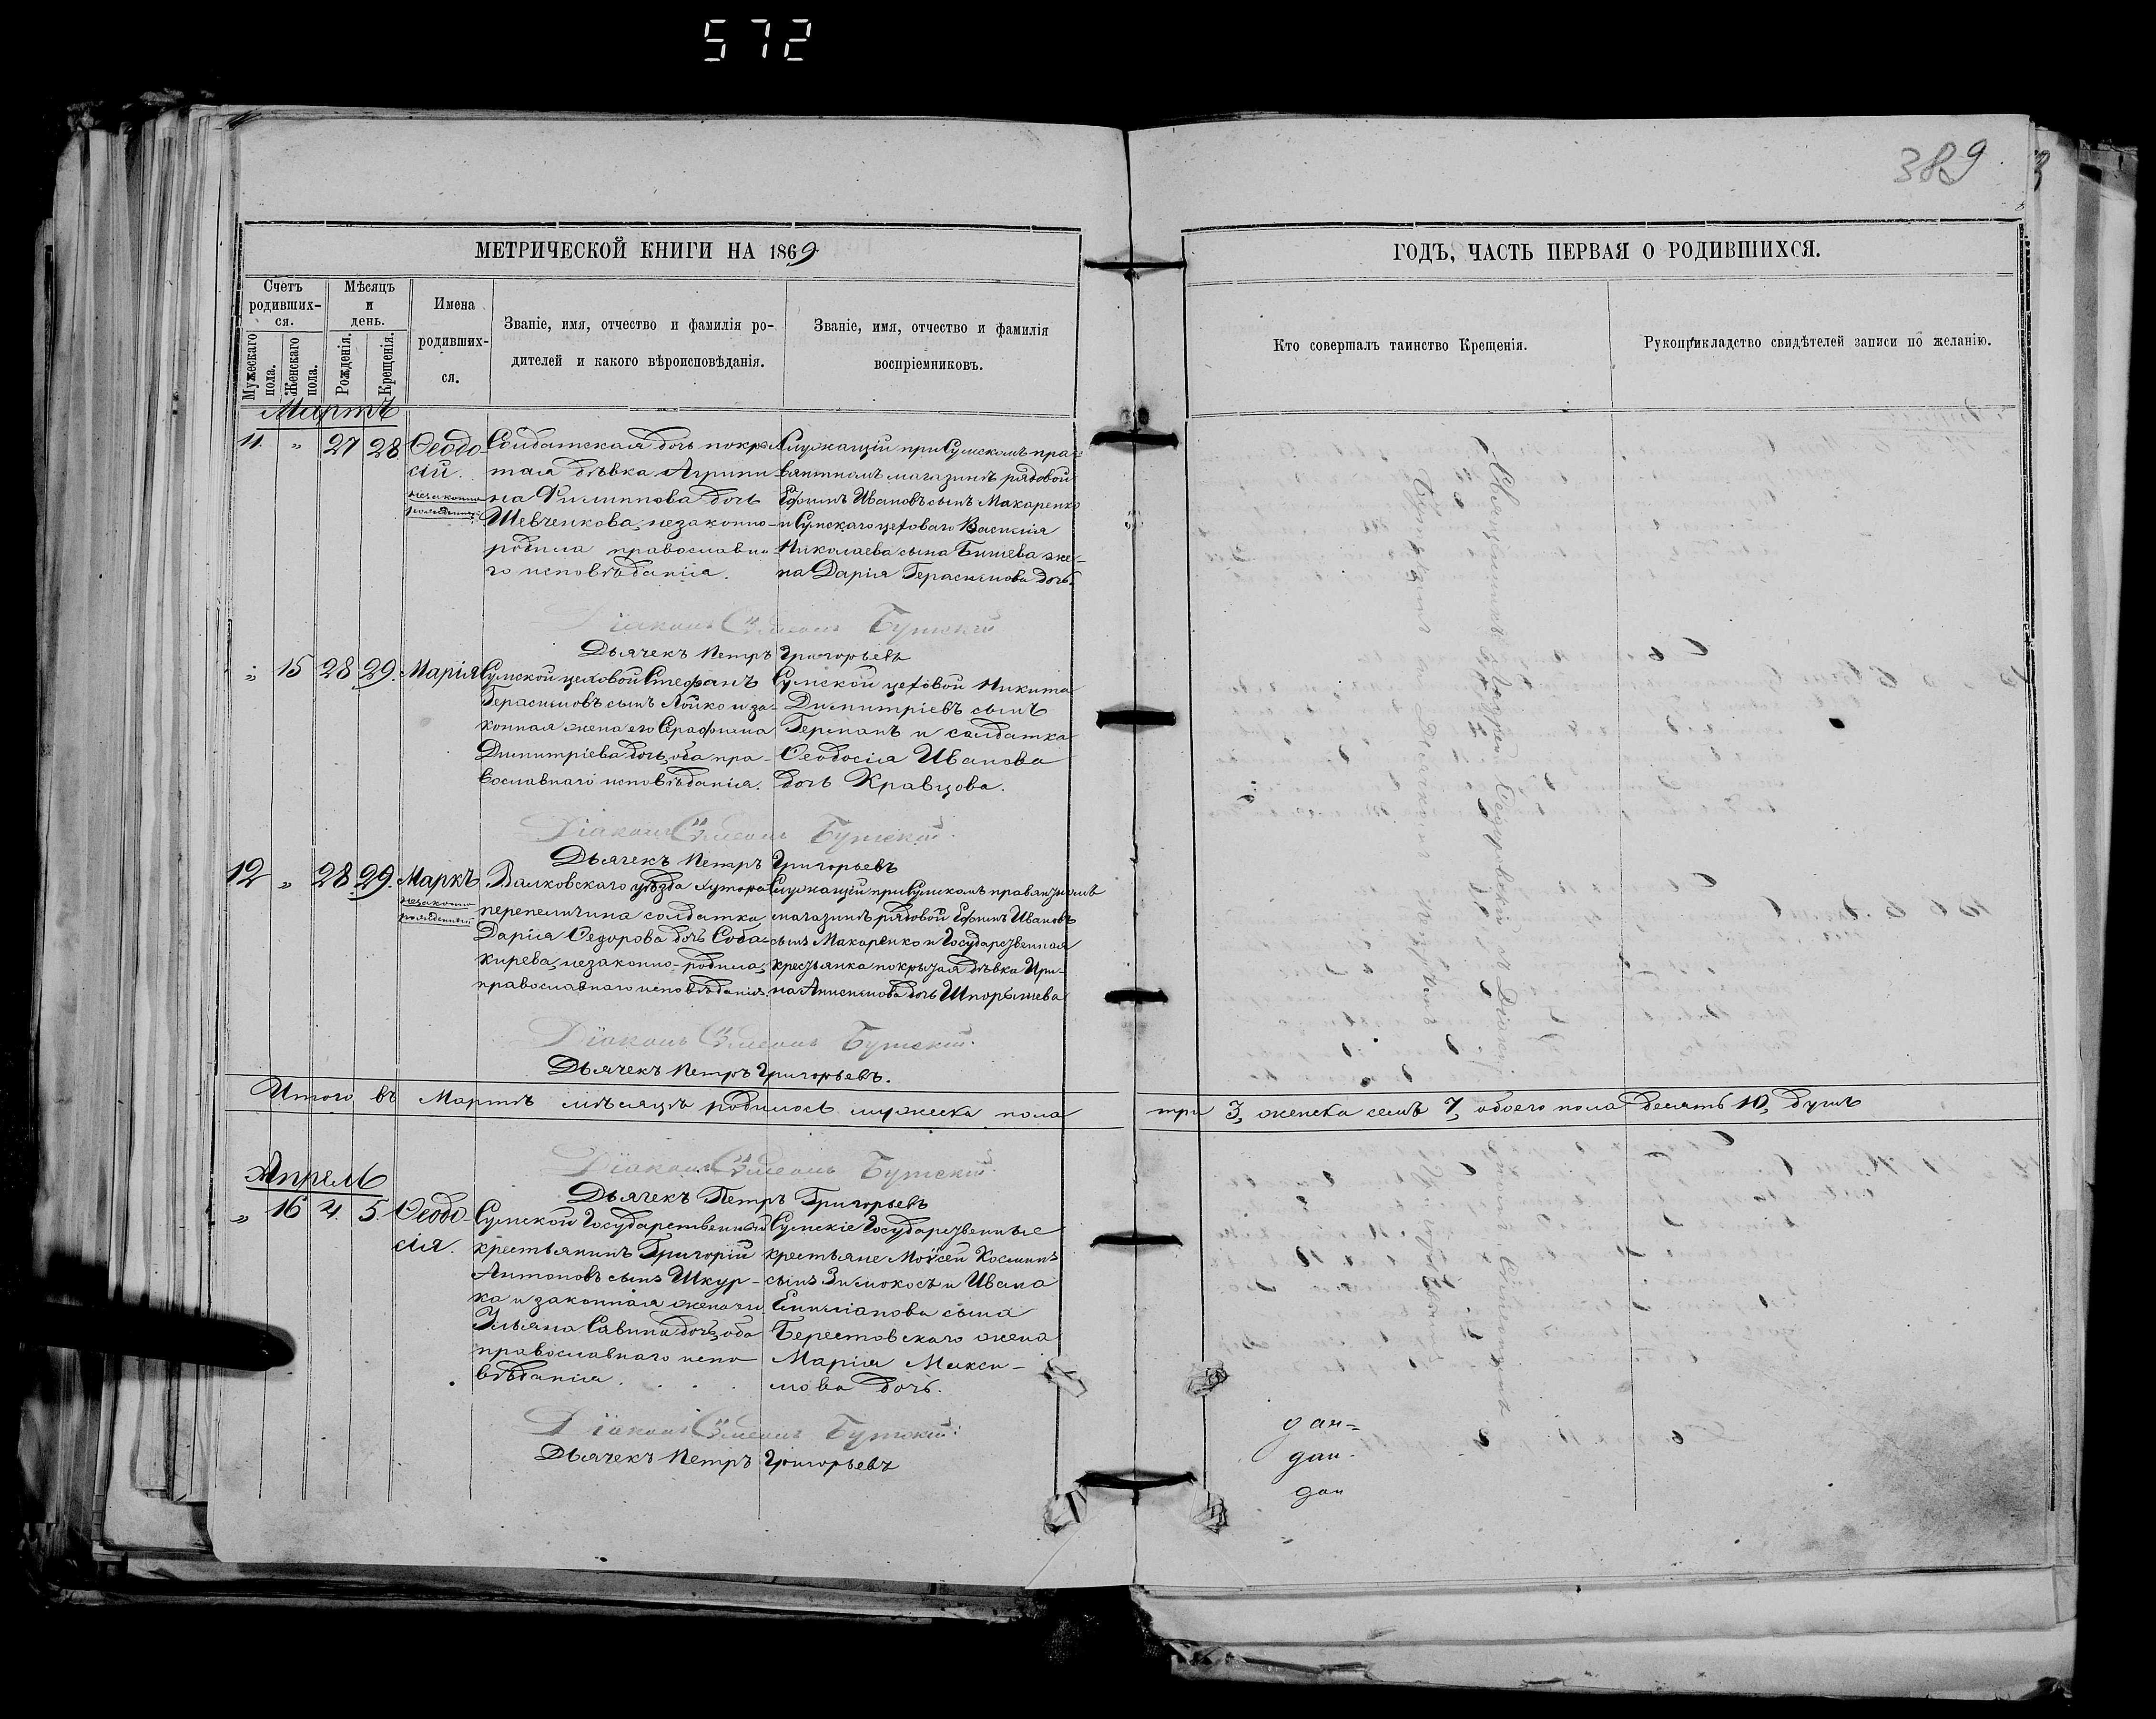 572
389
МЕТРИЧЕСКОЙ КНИГИ НА 1869
ГОДЪ, ЧАСТЬ ПЕРВАЯ О РОДИВШИХСЯ.
Счетъ родивших-ся.
Мужескаго пола.
Женскаго пола.
Мѣсяцъ и день.
Рожденія.
Крещенія.
Имена
родивших-
ся.
Званіе, имя, отчество и фамилія ро-
дителей и какого вѣроисповѣданія.
Званіе, имя, отчество и фамилія
воспріемниковъ.
Кто совершалъ таинство Крещенія.
Рукоприкладство свидѣтелей записи по желанію.
Мартъ
11. " 27 28 Ѳеодо-
сій.
незаконно
рожденный
Солдатская дочь покры-
тая дѣвка Агрипи
на Филиппова дочь
Шевченкова, незаконно-
родила православна-
го исповѣданія.
Служащій при Сумскомъ про-
віянтномъ магазинѣ рядовой
Ефимъ Ивановъ сынъ Макаренко
и Сумскаго цеховаго Василія
Николаева сына Бишева же-
на Дарія Герасимова дочь.
Діаконъ Сѵмеонъ
Дьячекъ Петръ Григорьевъ
" 15 28 29. Марія
Сумской цеховой Стефанъ
Герасимовъ сынъ Лойко и за-
конная жена его Серафима
Димитріева дочь, оба пра-
вославнаго исповѣданія.
Сумской цеховой Никита
Димитріевъ сынъ
Германъ и солдатка
Ѳеодосія Иванова
дочь Кравцова.
Діаконъ Сѵмеонъ
Дьячекъ Петръ Григорьевъ
12 " 28 29. Маркъ
незаконно
рожденный
Валковскаго уѣзда хутора
перепеличина солдатка
Дарія Ѳедорова дочь Соба-
кирева, незаконно-родила,
православнаго исповѣданія.
Служащій при Сумскомъ провіянтномъ
магазинѣ рядовой Ефимъ Ивановъ
сынъ Макаренко и Государственная
крестьянка покрытая дѣвка Ири-
на Анисимова дочь Шпорышева
Діаконъ Сѵмеонъ
Дьячекъ Петръ Григорьевъ.
Итого въ Мартѣ мѣсяцѣ родилось мужеска пола три 3, женска семь 7, обоего пола десять 10, душъ
Діаконъ Сѵмеонъ
Дьячекъ Петръ Григорьевъ
Апрель
" 16 4. 5. Ѳеодо-
сія.
Сумской Государственный
крестьянинъ Григорій
Антоновъ сынъ Шкур-
ка и законная жена его
Ульяна Савина дочь, оба
православнаго испо
вѣданія.
Сумскіе Государственные
крестьяне Моѵсей Косминъ
сынъ Зимокосъ и Ивана
Емиліанова сына
Берестовскаго жена
Марія Макси-
мова дочь.
Діаконъ Сѵмеонъ
Дьячекъ Петръ Григорьевъ